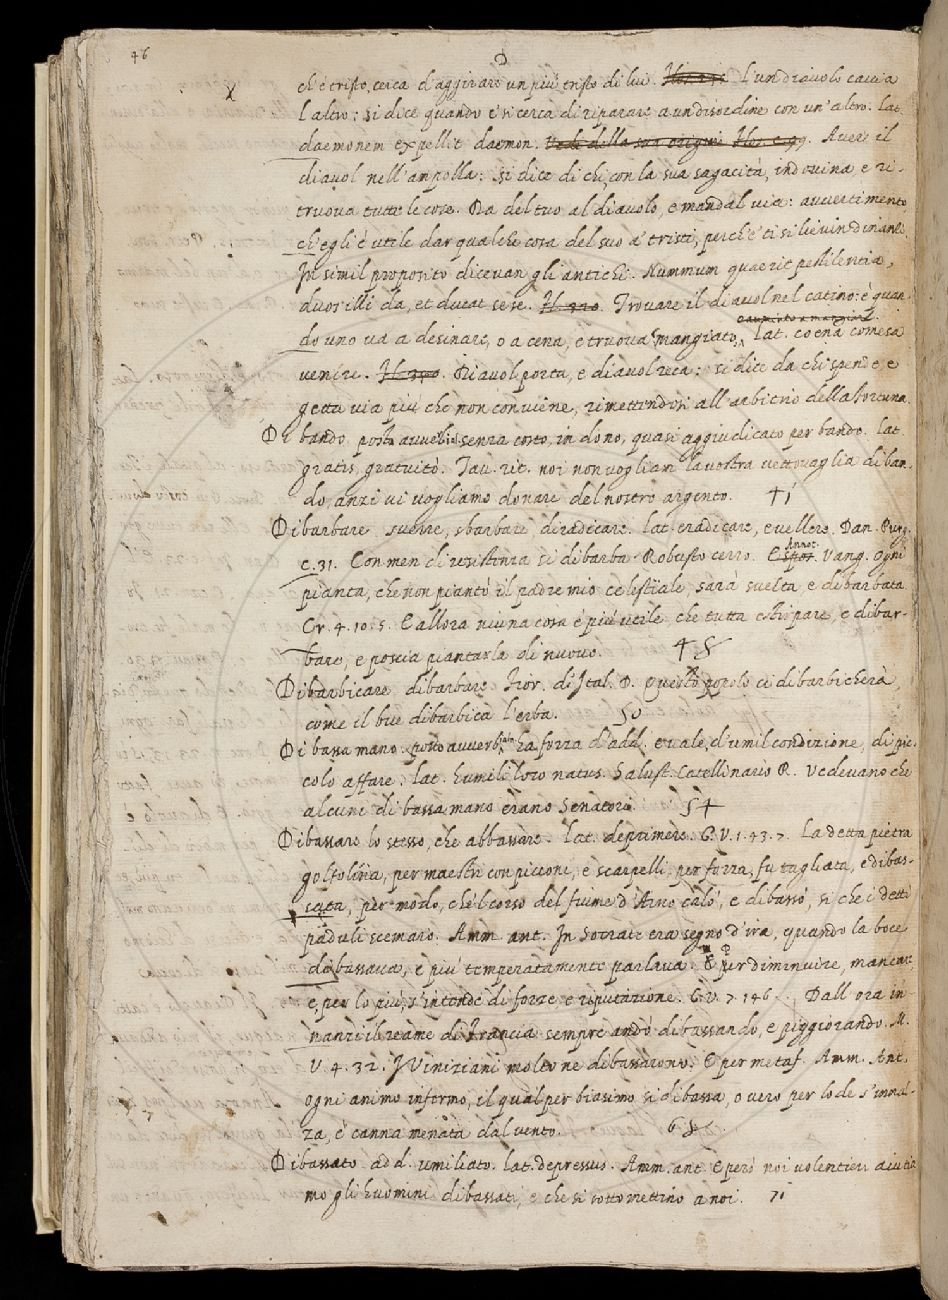 46
D
ch'è tristo, cerca d'aggirare un più tristo di lui. L'un diavolo caccia
l'altro: si dice quando e' si cerca di riparare a un disordine con un'altro. lat.
daemonem expellit daemon. Vedi della sua origine Aver il
diavol nell'ampolla: si dice di chi, con la sua sagacità, indovina e ri-
truova tutte le cose. Da del tuo al diavolo, e mandal via: avvertimento,
ch'egli è utile dar qualche cosa del suo a' tristi, perch'e' ti si lievin dinanzi.
In simil proposito dicevan gli antichi. Nummum quaerit pestilentia,
duos illi da, et ducat sese. Trovare il diavol nel catino: è quan-
do uno va a desinare, o a cena, e truova mangiato, lat. coena comesa
venire. Diavol porta, e diavol reca: si dice da chi spende, e
getta via più che non conviene, rimettendosi all'arbitrio della fortuna.
Di bando. posto avverbial. senza costo, in dono, quasi aggiudicato per bando. lat.
gratis, gratuitò. Tav. rit. noi non vogliam la vostra vettovaglia di ban-
do, anzi vi vogliamo donare del nostro argento.
Dibarbare sverre, sbarbare diradicare. lat. eradicare, evellere. Dan. Purg.
c. 31. Con men di resistenza si dibarba Robusto cerro. Annot. Vang. Ogni
pianta, che non piantò il padre mio celestiale, sarà svelta e dibarbata.
Cr. 4. 10. 5. E allora niuna cosa è più utile, che tutta estirpare, e dibar-
bare, e poscia piantarla di nuovo.
Dibarbicare dibarbare. Fior. d'Ital. D. Questo popolo ci dibarbicherà,
come il bue dibarbica l'erba. 50
Di bassa mano. posto avverbialm. ha forza d'add. e vale, d'umil condizione, di pic-
colo affare. lat. humili loco natus. Salust. Catellinario R. Vedevano che
alcuni di bassa mano erano Senatori. 54
Dibassare lo stesso, che abbassare. lat. deprimere. G. V. 1. 43. 7. La detta pietra
golfolina, per maestri con picconi, e scarpelli, per forza, fu tagliata, e dibas-
sata, per modo, che 'l corso del fiume d'Arno calò, e dibassò, si che i detti
paduli scemaro. Amm. ant. In Socrate era segno d'ira, quando la boce
dibassava, e più temperatamente parlava. per diminuire, mancare,
e, per lo più, s'intende di forze e riputazione. G. V. 7. 146. Dall'ora in-
nanzi il reame di Francia sempre andò dibassando, e piggiorando. M.
V. 4. 32. I Viniziani molto ne dibassarono. E per metaf. Amm. Ant.
ogni animo infermo, il qual per biasimo si dibassa, o vero per lode s'innal-
za, è canna menata dal vento.
Dibassato add. umiliato. lat. depressus. Amm. ant. E però noi volentieri aiutia-
mo gli huomini dibassati, e che si sottomettino a noi. 71